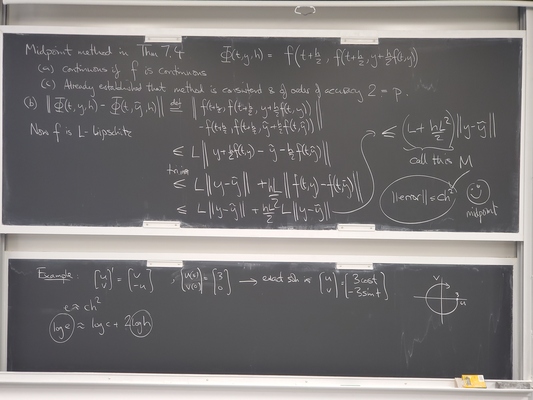 Midpoint method in Thm 7.4
Φ(t,y,h) = f(t+h/2, f(t+h/2, y+h/2 f(t,y))
(a) continuous if f is continuous
(c) Already established that method is consistent & of order of accuracy 2 = p.
(b) ||Φ(t,y,h) - Φ(t,ỹ,h)|| = def || f(t+h/2, f(t+h/2, y+h/2 f(t,y))
- f(t+h/2, f(t+h/2, ỹ+h/2 f(t,ỹ)) ||
Now f is L-Lipschitz
≤ L || y+h/2 f(t,y) - ỹ - h/2 f(t,ỹ) ||
≤ L ||y-ỹ|| + hL/2 || f(t,y) - f(t,ỹ) ||
≤ L ||y-ỹ|| + hL/2 L ||y-ỹ||
≤ (L + hL²/2) ||y-ỹ||
call this M
||error|| ≤ ch²
midpoint
Example [u v]' = [v -u] , [u(0) v(0)] = [3 0] → exact soln is [u v] = [3cost -3sint]
e ≈ ch²
log e ≈ log c + 2 log h
v
3
u